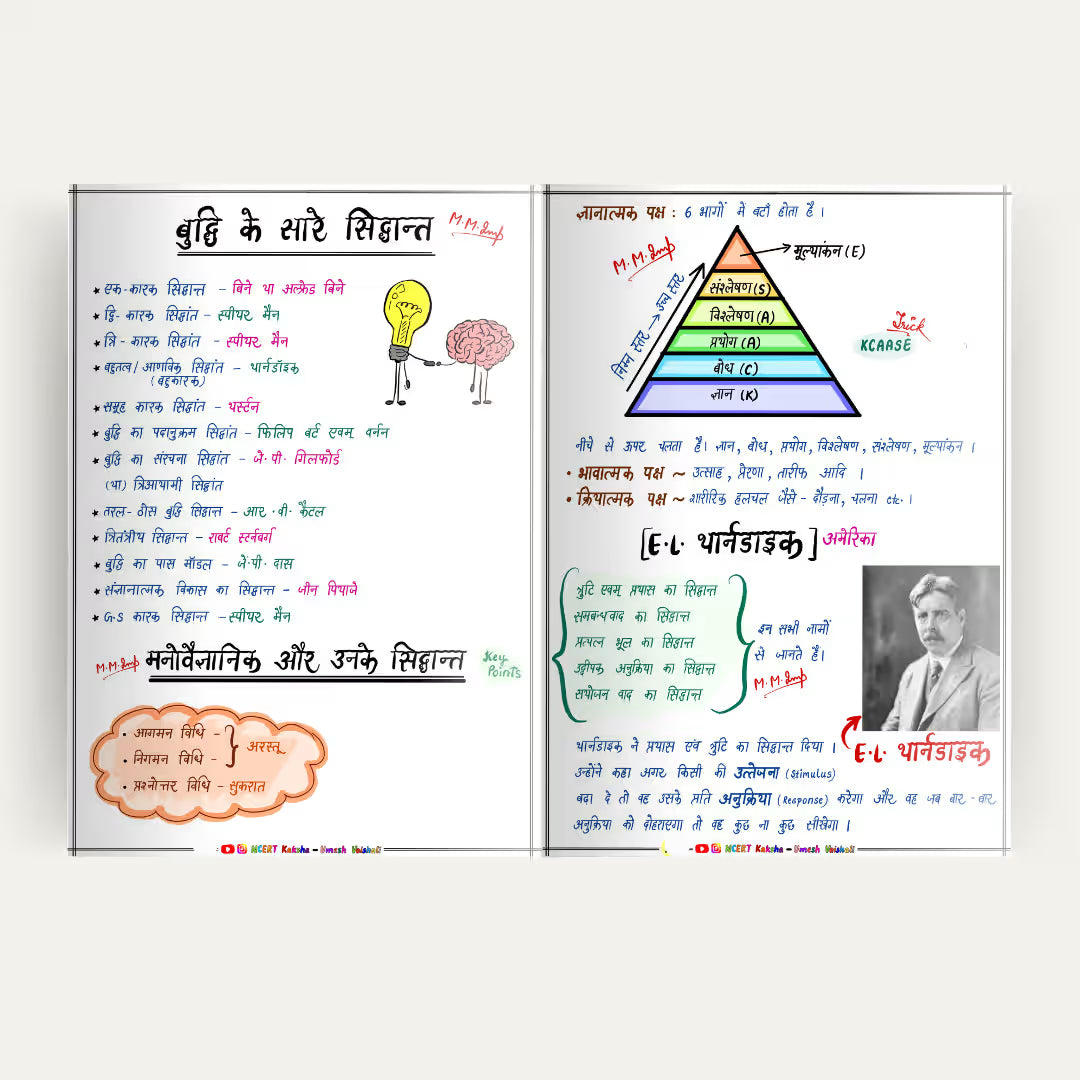 बुद्धि के सारे सिद्धान्त
M.M.Imp
★ एक-कारक सिद्धान्त - बिने या अल्फ्रेड बिने
★ द्वि-कारक सिद्धांत - स्पीयर मैन
★ त्रि-कारक सिद्धांत - स्पीयर मैन
★ बहुतत्व/आणविक सिद्धांत - थार्नडॉइक
(बहुकारक)
★ समूह कारक सिद्धांत - थर्स्टन
★ बुद्धि का पदानुक्रम सिद्धांत - फिलिप बर्ट एवम् वर्नन
★ बुद्धि का संरचना सिद्धांत - जे॰पी॰ गिलफोर्ड
(या) त्रिआयामी सिद्धांत
★ तरल-ठोस बुद्धि सिद्धान्त - आर॰वी॰ कैटल
★ त्रितंत्रीय सिद्धान्त - राबर्ट स्टर्नबर्ग
★ बुद्धि का पास मॉडल - जे॰पी॰ दास
★ संज्ञानात्मक विकास का सिद्धान्त - जीन पियाजे
★ G.S कारक सिद्धान्त - स्पीयर मैन
M.M.Imp मनोवैज्ञानिक और उनके सिद्धान्त
Key Points
• आगमन विधि -
• निगमन विधि - } अरस्तू
• प्रश्नोत्तर विधि - सुकरात
: NCERT Kaksha - Umesh Vaishali
ज्ञानात्मक पक्ष : 6 भागों में बटा होता है।
M.M.Imp
मूल्यांकन (E)
संश्लेषण (S)
विश्लेषण (A)
प्रयोग (A)
बोध (C)
ज्ञान (K)
निम्न स्तर → उच्च स्तर
Trick
KCAASE
नीचे से ऊपर चलता है। ज्ञान, बोध, प्रयोग, विश्लेषण, संश्लेषण, मूल्यांकन।
• भावात्मक पक्ष ~ उत्साह, प्रेरणा, तारीफ आदि।
• क्रियात्मक पक्ष ~ शारीरिक हलचल जैसे - दौड़ना, चलना etc.।
[E.L. थार्नडाइक] अमेरिका
त्रुटि एवम् प्रयास का सिद्धान्त
समबन्धवाद का सिद्धान्त
प्रत्यत्न भूल का सिद्धान्त
उद्दीपक अनुक्रिया का सिद्धान्त
सयोजन वाद का सिद्धान्त
इन सभी नामों
से जानते है।
M.M.Imp
E.L. थार्नडाइक
थार्नडाइक ने प्रयास एवं त्रुटि का सिद्धान्त दिया।
उन्होंने कहा अगर किसी की उत्तेजना (Stimulus)
बढ़ा दे तो वह उसके प्रति अनुक्रिया (Response) करेगा और वह जब बार-बार
अनुक्रिया को दोहराएगा तो वह कुछ ना कुछ सीखेगा।
- NCERT Kaksha - Umesh Vaishali